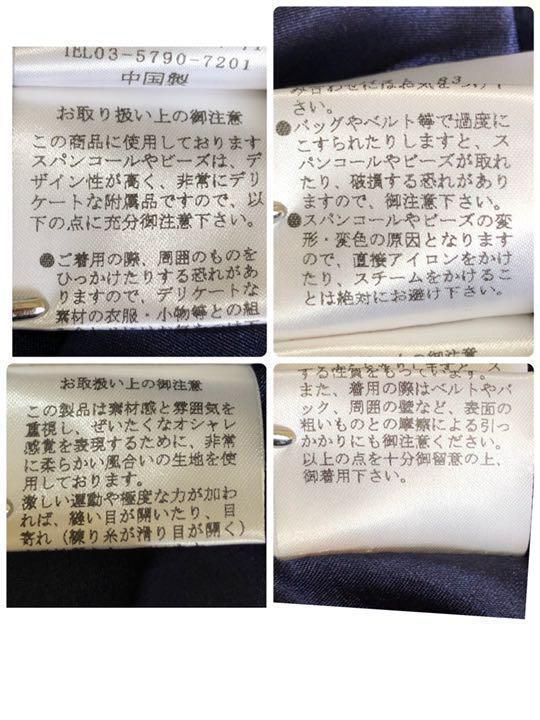 TEL03-5790-7201
中国製
お取り扱い上の御注意
この商品に使用しております
スパンコールやビーズは、デ
ザイン性が高く、非常にデリ
ケートな附属品ですので、以
下の点に充分御注意下さい。
●ご着用の際、周囲のものを
ひっかけたりする恐れがあ
りますので、デリケートな
素材の衣服・小物等との組
さい。
●バッグやベルト等で過度に
こすられたりしますと、ス
パンコールやビーズが取れ
たり、破損する恐れがあり
ますので、御注意下さい。
●スパンコールやビーズの変
形・変色の原因となります
ので、直接アイロンをかけ
たり、スチームをかけるこ
とは絶対にお避け下さい。
お取扱い上の御注意
この製品は素材感と雰囲気を
重視し、ぜいたくなオシャレ
感覚を表現するために、非常
に柔らかい風合いの生地を使
用しております。
激しい運動や極度な力が加わ
れば、縫い目が開いたり、目
寄れ（練り糸が滑り目が開く）
する性質をもっています。
また、着用の際はベルトやバ
ック、周囲の壁など、表面の
粗いものとの摩擦による引っ
かかりにも御注意ください。
以上の点を十分御留意の上、
御着用下さい。